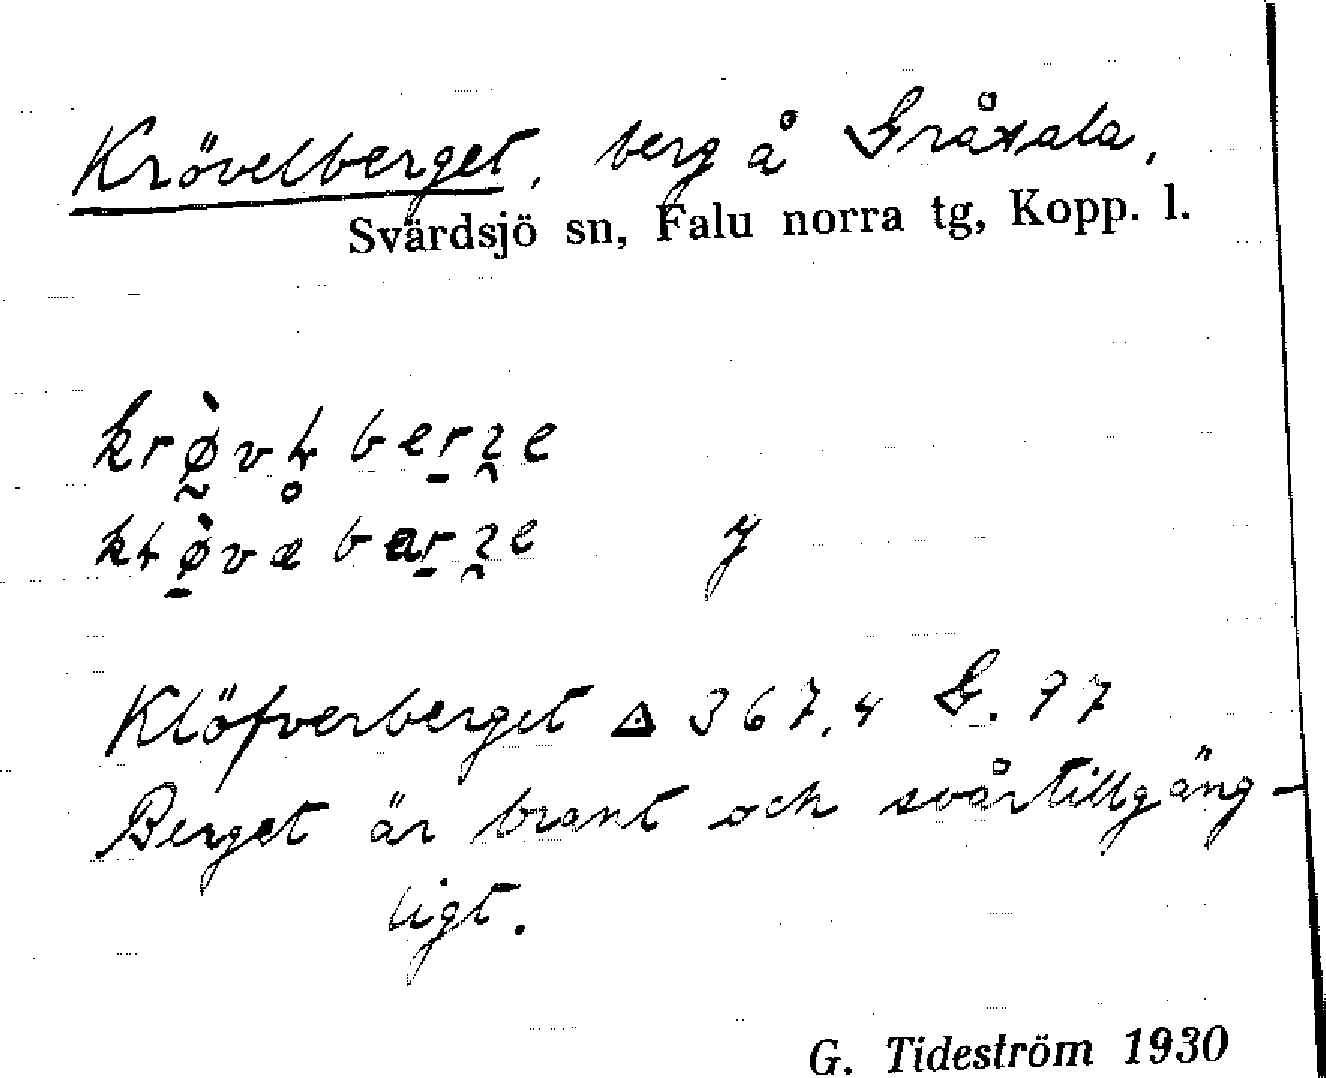 Krövelberget, berg å Gråsala,
Svärdsjö sn, Falu norra tg, Kopp. l.
y
Klöfverberget △ 367,4 G. 97
Berget är brant och svårtillgäng-
ligt.
G. Tideström 1930